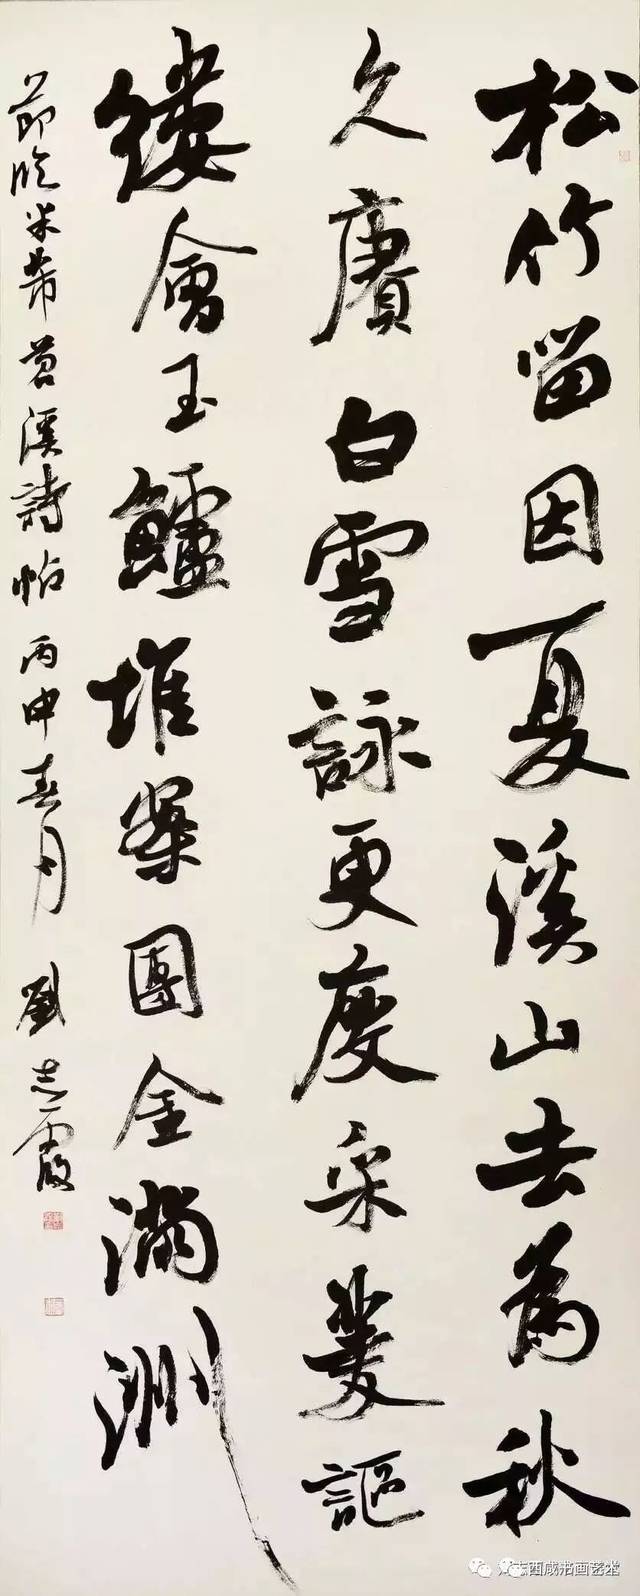 松竹留因夏溪山去為秋
久賡白雪詠更度采菱謳
縷會玉鱸堆案團金滿洲
節臨米芾苕溪詩帖丙申春月劉志霞
西咸书画艺